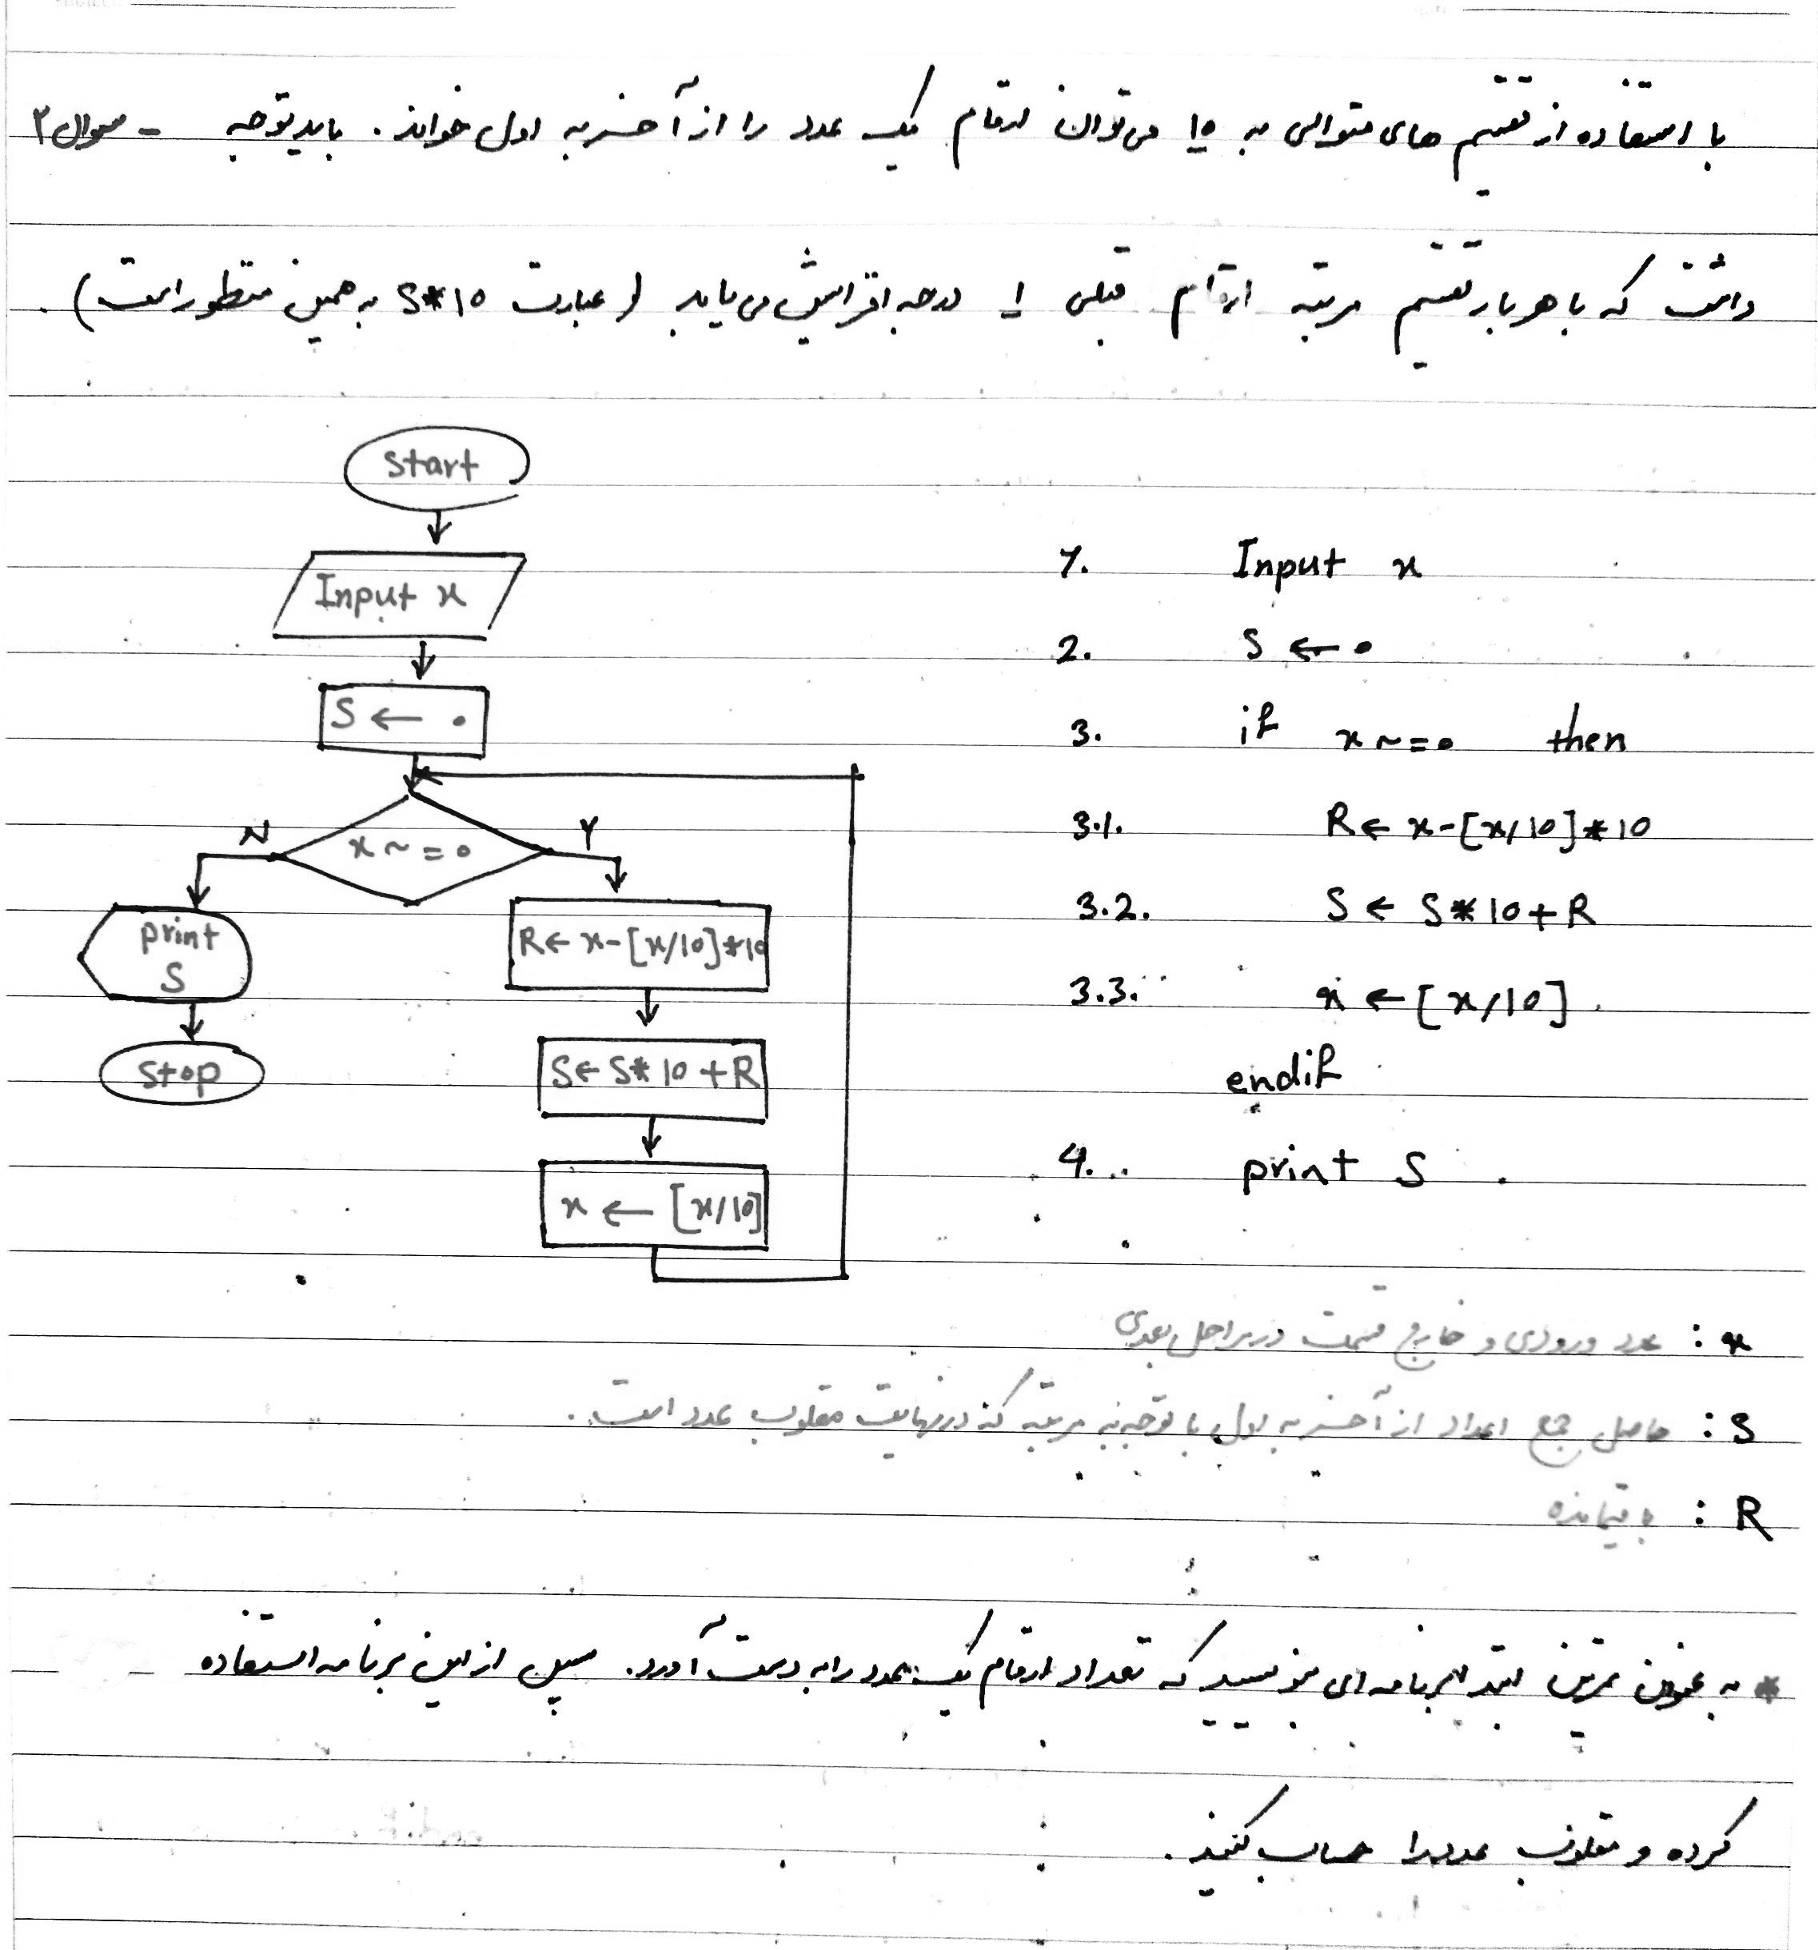 سوال ۲ - با استفاده از تقسیم های متوالی به ۱۰ می توان ارقام یک عدد را از آخر به اول خواند. باید توجه
داشت که با هر بار تقسیم مرتبه ارقام قبلی ۱ درجه افزایش می یابد (عبارت S*10 به همین منظور است).
start
Input x
S ← 0
x ~= 0
N
Y
print
S
stop
R ← x-[x/10]*10
S ← S*10+R
x ← [x/10]
1. Input x
2. S ← 0
3. if x ~= 0 then
3.1. R ← x-[x/10]*10
3.2. S ← S*10+R
3.3. x ← [x/10]
endif
4. print S
x : عدد ورودی و خارج قسمت در مراحل بعدی
S : حاصل جمع اعداد از آخر به اول با توجه به مرتبه که در نهایت مقلوب عدد است.
R : باقیمانده
* به عنوان تمرین ابتدا برنامه ای بنویسید که تعداد ارقام یک عدد را به دست آورد. سپس از این برنامه استفاده
کرده و مقلوب عدد را حساب کنید.